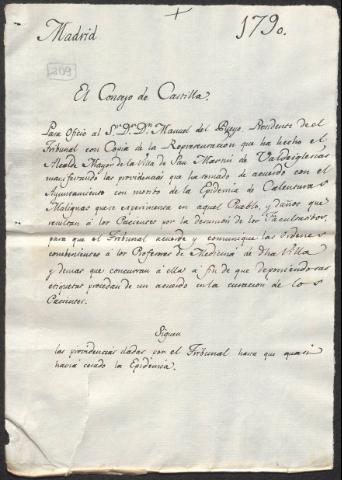 Madrid 1790.
209
El Consejo de Castilla.
Pasa Oficio al Sr. Dn. Dn. Manuel del Pueyo, Presidente de el
Tribunal con Copia de la Representacion que ha hecho el
Alcalde Mayor de la Villa de Sn. Martin de Valdeiglesias
manifestando las providencias que ha tomado de acuerdo con el
Ayuntamiento con motivo de la Epidemia de Calenturas
Malignas que se experimenta en aquel Pueblo, y daños que
resultan à los Pacientes por la desunion de los Facultativos,
para que el Tribunal acuerde y comunique las Ordenes
combenientes à los Profesores de Medicina de dha Villa
y demas que concurran à ella à fin de que deponiendo sus
etiquetas procedan de un acuerdo en la curacion de los
Pacientes.
Siguen
las providencias dadas por el Tribunal hasta que quasi
havia cesado la Epidemia.